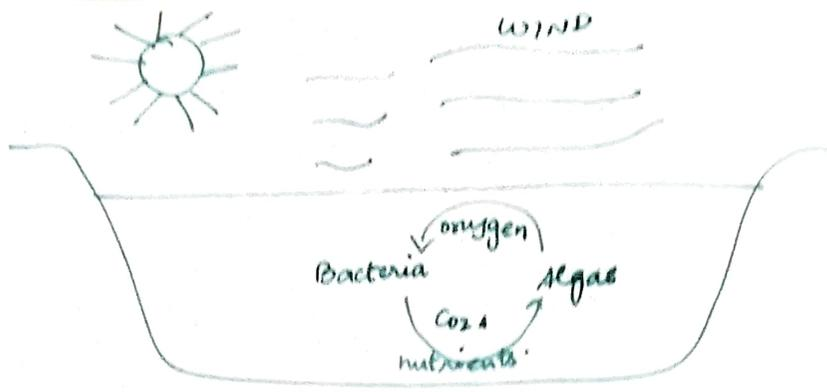 WIND
oxygen
Bacteria
Algae
CO2 &
nutrients